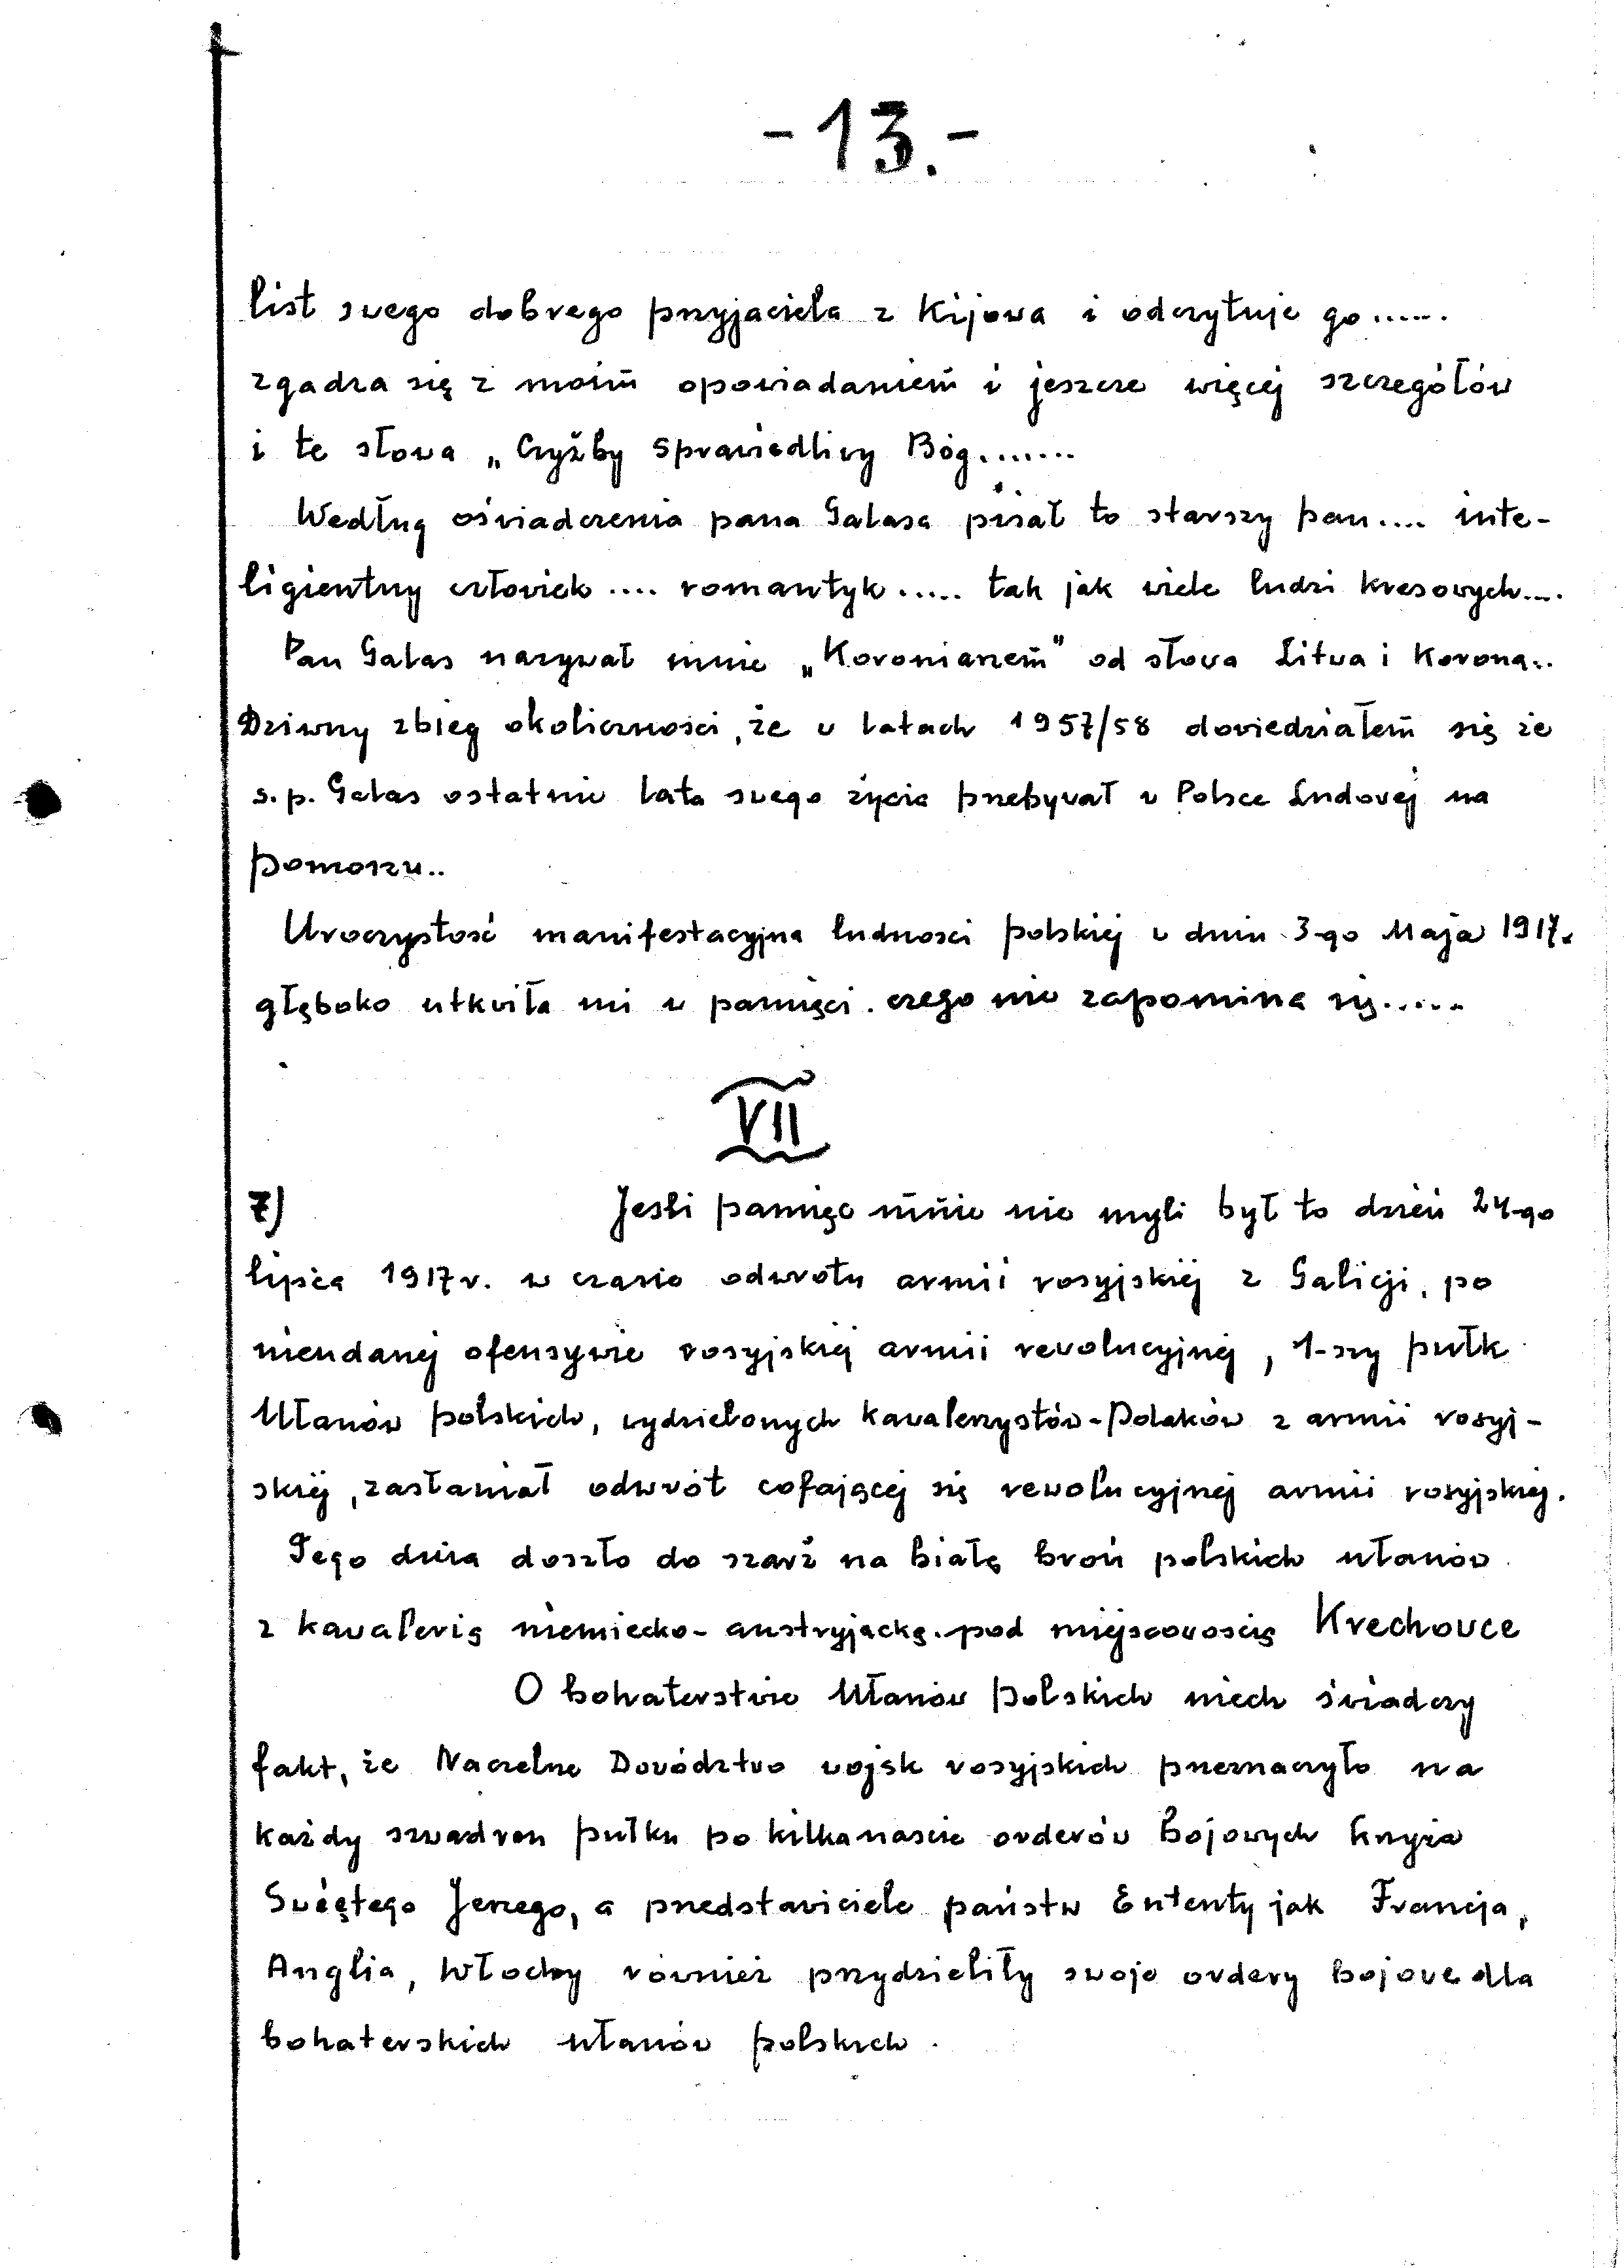 -13.-
list swego dobrego przyjaciela z Kijowa i odczytuje go......
zgadza się z moim opowiadaniem i jeszcze więcej szczegółów
i te słowa „Czyżby sprawiedliwy Bóg.......
Według oświadczenia pana Galasa pisał to starszy pan.... inte-
ligientny człowiek .... romantyk..... tak jak wiele ludzi kresowych....
Pan Galas nazywał mnie „Koroniarzem" od słowa Litwa i Korona..
Dziwny zbieg okoliczności, że w latach 1957/58 dowiedziałem się że
s.p. Galas ostatnie lata swego życia przebywał w Polsce Ludowej na
pomorzu..
Uroczystość manifestacyjna ludności polskiej w dniu 3-go Maja 1917.
głęboko utkwiła mi w pamięci. czego nie zapomina się.....
VII
7)
Jeśli pamięć mnie nie myli był to dzień 24-go
lipca 1917r. w czasie odwrotu armii rosyjskiej z Galicji, po
nieudanej ofensywie rosyjskiej armii rewolucyjnej, 1-szy pułk
Ułanów polskich, wydzielonych kawalerzystów-Polaków z armii rosyj-
skiej, zasłaniał odwrót cofającej się rewolucyjnej armii rosyjskiej.
Tego dnia doszło do szarż na białą broń polskich ułanów
z kawalerią niemiecko-austryjacką. pod miejscowością Krechowce
O bohaterstwie Ułanów Polskich niech świadczy
fakt, że Naczelne Dowództwo wojsk rosyjskich przeznaczyło na
każdy szwadron pułku po kilkanaście orderów bojowych krzyża
Świętego Jerzego, a przedstawiciele państw Ententy jak Francja,
Anglia, Włochy również przydzieliły swoje ordery bojowe dla
bohaterskich ułanów polskich.